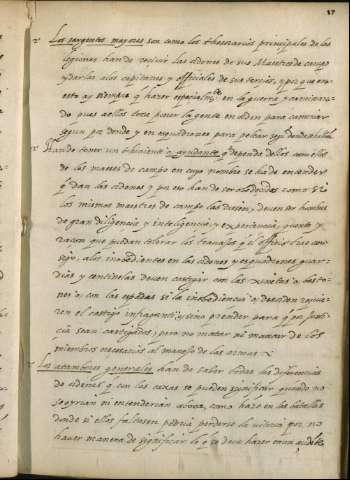 17
Los sargentos mayores son como los thessarios principales de las
legiones han de recivir las ordenes de sus Maestros de campo
y darlas a los capitanes y officiales de sus tercios, y por que en
esto ay siempre q̃ hazer especialm.te en la guerra y caminan
do pues a ellos toca poner la gente en orden para caminar
segun pa donde y en esquadrones para pelear
Han de tener un theniente o ayudante q̃ depende dellos como ellos
de los maeses de campo en cuyo nombre se ha de entender
q̃ dan las ordenes y por eso han de ser obedecidos como si
los mismos maestres de campo las diesen, deven ser hombres
de gran diligencia y inteligencia y experiencia,
que puedan tolerar los travajos q̃ el officio trae con
sigo. a los inobedientes en las ordenes y esquadrones guar
dias y centinelas deven castigar con las ginetas o basto
nes o con las espadas si la inobediencia o desorden requie
ren el castigo infraganti y sino prender para q̃ por justi
cia sean castigados, pero no matar ni mancar de los
miembros necesarios al manejo de las armas.
Los atambores generales han de saber todas las diferencias
de ordenes q̃ con las caxas se pueden significar quando no
se oyrian ni entenderian a boca, como haze en las batallas
donde si ellos faltasen podria perderse la victoria por no
haver manera de significar lo q̃ se deve hazer